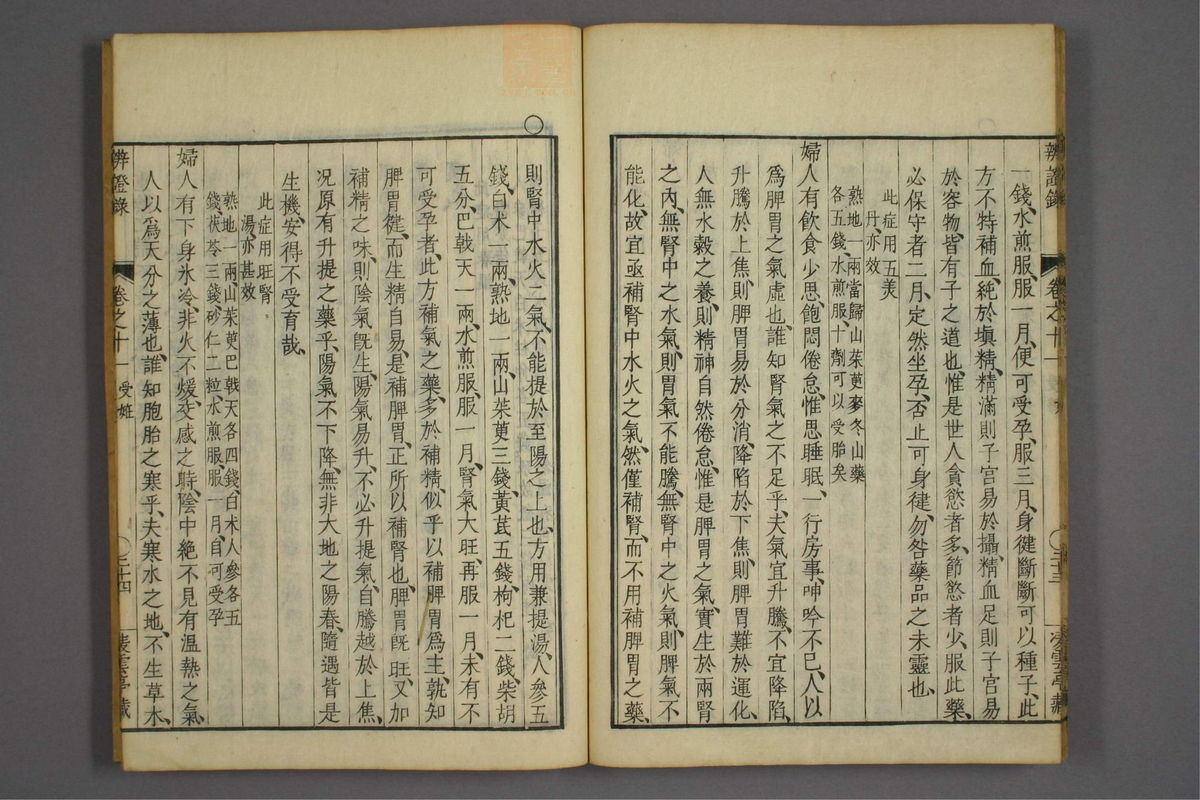 辨證錄 卷之十一 三十三 凌雲亭藏
一錢、水煎服、服一月、便可受孕、服三月、身健斷斷可以種子、此
方不特補血、純於塡精、精滿則子宮易於攝精、血足則子宮易
於容物、皆有子之道也、惟是世人貪慾者多、節慾者少、服此藥、
必保守者三月、定然坐孕、否止可身健、勿咎藥品之未靈也、
此症用五美
丹、亦效
熟地一兩當歸山茱萸麥冬山藥
各五錢、水煎服、十劑可以受胎矣
婦人有飲食少思、飽悶倦怠、惟思睡眠、一行房事、呻吟不已、人以
爲脾胃之氣虛也、誰知腎氣之不足乎、夫氣宜升騰、不宜降陷、
升騰於上焦、則脾胃易於分消、降陷於下焦、則脾胃難於運化、
人無水穀之養、則精神自然倦怠、惟是脾胃之氣、實生於兩腎
之內、無腎中之水氣、則胃氣不能騰、無腎中之火氣、則脾氣不
能化、故宜亟補腎中水火之氣、然僅補腎、而不用補脾胃之藥、
則腎中水火二氣、不能提於至陽之上也、方用兼提湯、人參五
錢、白朮一兩、熟地一兩、山茱萸三錢、黃芪五錢、枸杞二錢、柴胡
五分、巴戟天一兩、水煎服、服一月、腎氣大旺、再服一月、未有不
可受孕者、此方補氣之藥、多於補精、似乎以補脾胃爲主、孰知
脾胃健、而生精自易、是補脾胃、正所以補腎也、脾胃旣旺、又加
補精之味、則陰氣旣生、陽氣易升、不必升提氣、自騰越於上焦、
况原有升提之藥乎、陽氣不下降、無非大地之陽春、隨遇皆是
生機、安得不受育哉、
此症用旺腎
湯、亦甚效
熟地一兩、山茱萸巴戟天各四錢、白朮人參各五
錢、茯苓三錢、砂仁二粒、水煎服、服一月、自可受孕
婦人有下身冰冷、非火不煖、交感之時、陰中絕不見有溫熱之氣、
人以爲天分之薄也、誰知胞胎之寒乎、夫寒水之地、不生草木、
辨證錄 卷之十一 受姙 三十四 凌雲亭藏